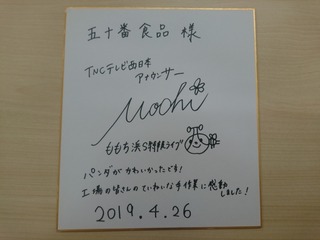 五十番食品 様
TNCテレビ西日本
アナウンサー
Mochi
ももち浜S特報ライブ
パンダがかわいかったどす!
工場の皆さんのていねいな手作業に感動しました!
2019.4.26